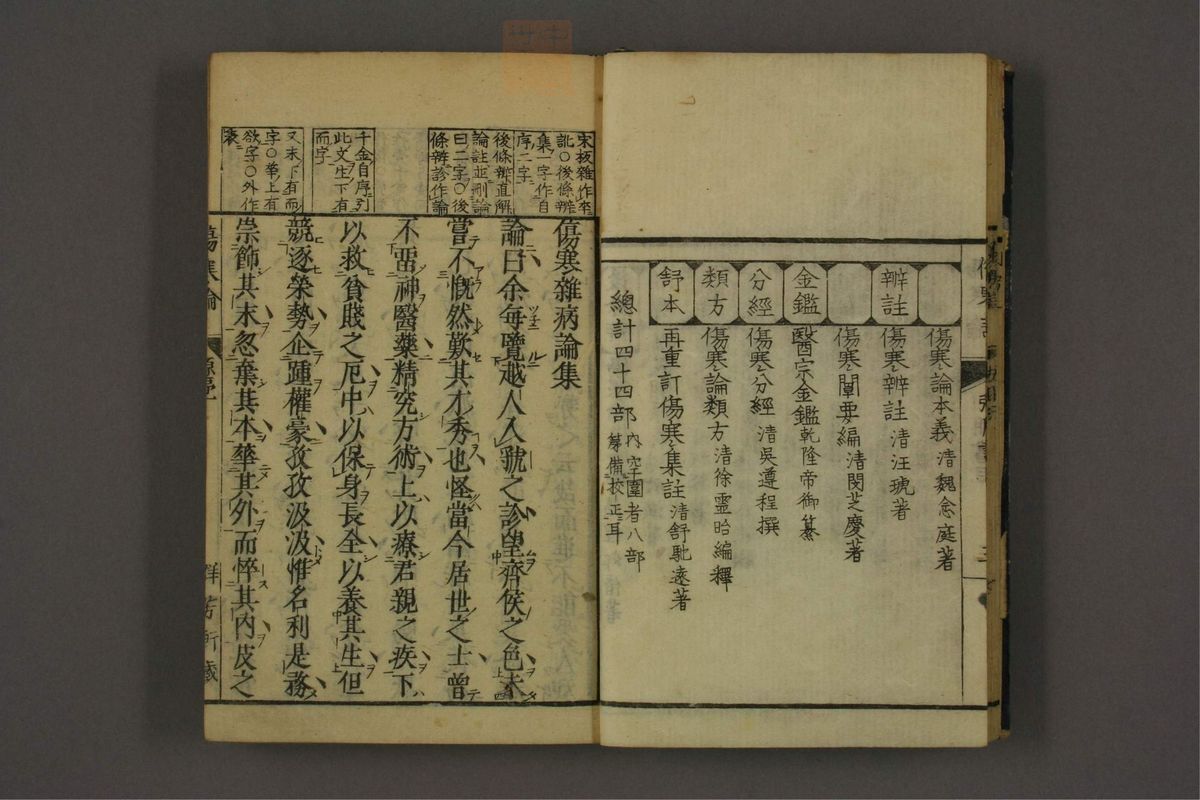 傷寒論本義 清魏念庭著
辨註 傷寒辨註 清汪琥著
傷寒闡要編 清閔芝慶著
金鑑 醫宗金鑑 乾隆帝御纂
分經 傷寒分經 清吳遵程撰
類方 傷寒論類方 清徐靈昭編釋
舒本 再重訂傷寒集註 清舒馳遠著
總計四十四部 內空圍者八部
纂備校正耳
宋板雜作卒
訛○後條辨
集一字作自
序二字
後條辨直解
論註並刪論
曰二字○後
條辨診作論
千金自序列
此文生下有
而字
又末下有而
字○華上有
欲字○外作
表
傷寒雜病論集
論曰余每覽越人入虢之診望齊侯之色未
嘗不慨然歎其才秀也怪當今居世之士曾
不留神醫藥精究方術上以療君親之疾下
以救貧賤之厄中以保身長全以養其生但
競逐榮勢企踵權豪孜孜汲汲惟名利是務
崇飾其末忽棄其本華其外而悴其內皮之